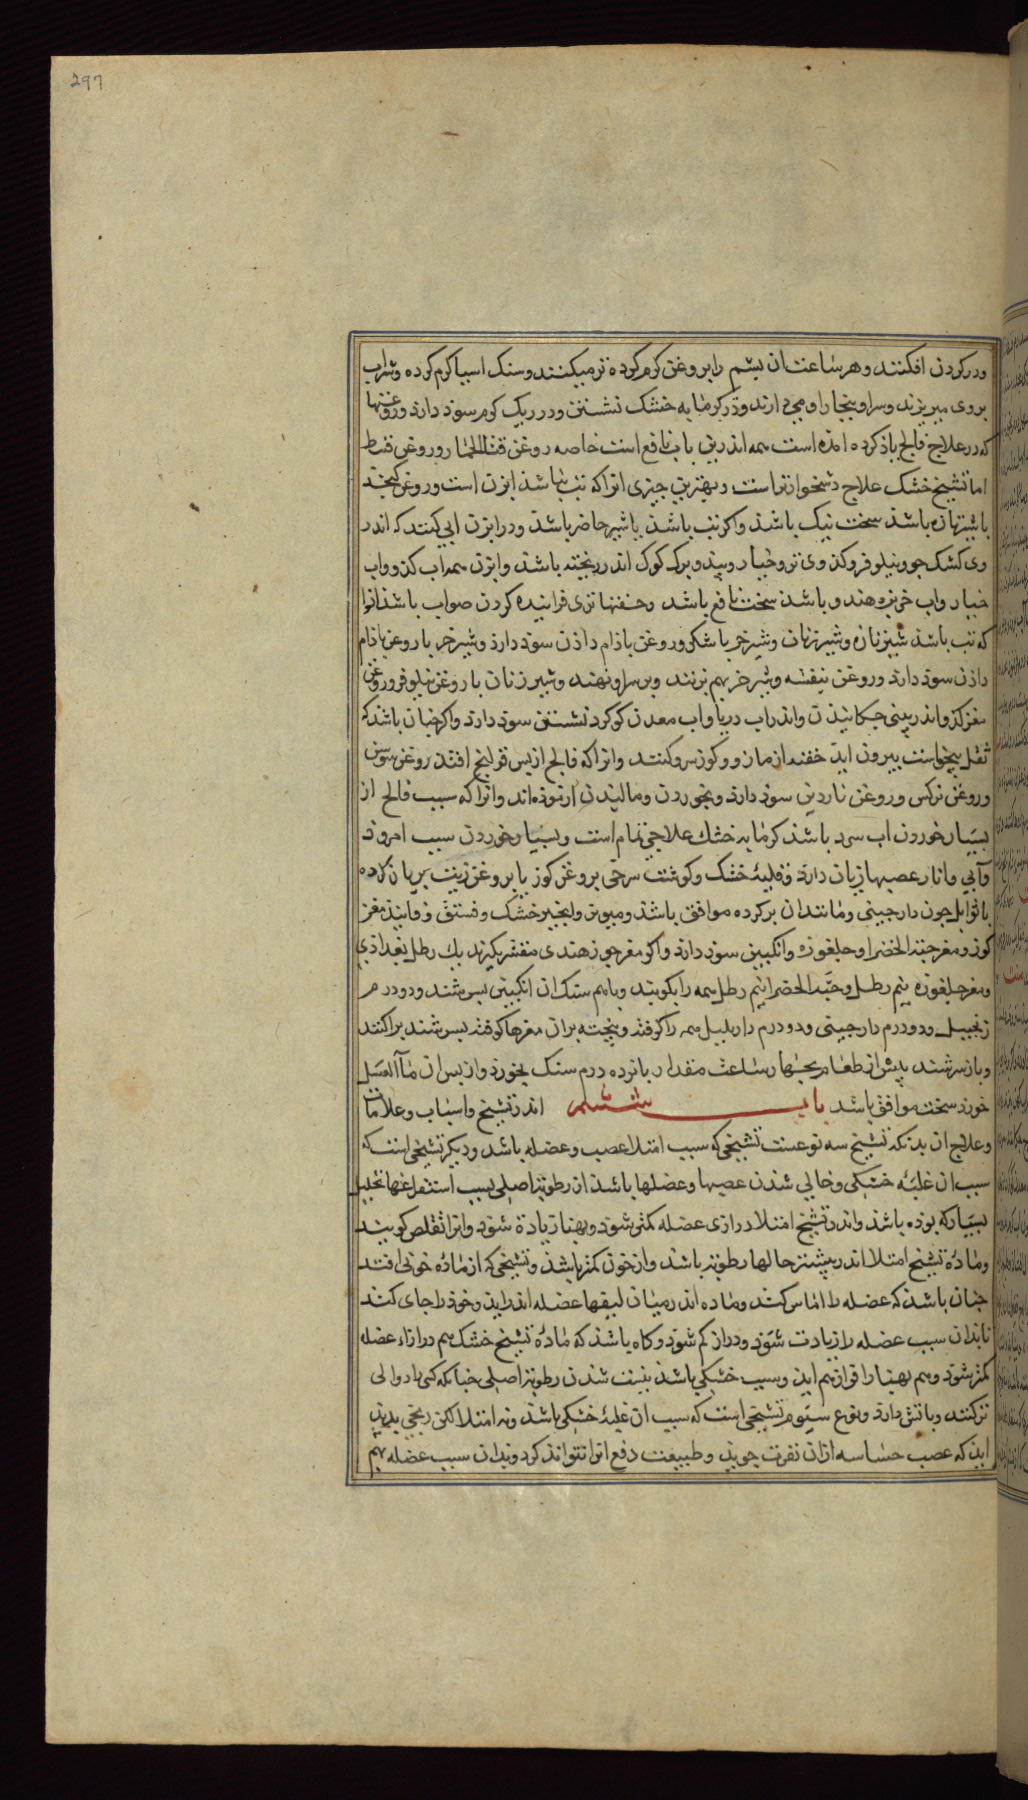 297
ودر کردن افکنند وهر ساعت ان پشم را بروغن کرم کرده تر میکنند وسنک اسیا کرم کرده وشراب
بروی میریزند وسر او ببخار او می دارند ودر کرمابه خشک نشستن ودر ریک کرم سوذ دارذ وروغنها
که در علاج فالج یاذ کرده امذه است همه اندرین باب نافع است خاصه روغن قثاالحمار وروغن قسط
اما تشنج خشک علاج دشخوارتر است وبهترین چیزی انرا که تب نباشذ ابزن است وروغن کنجد
با شیر تازه باشذ سخت نیک باشذ واکر تب باشذ یا شیر حاضر نباشذ ودر ابزن ابی کنند که اندر
وی کشک جو ونیلوفر وکذوی تر وخیار وبید وبرک کوک اندر پخته باشذ وابزن همه اب کذو واب
خیار واب خربزه هندو باشذ سخت نافع باشذ وحقنها تری فزاینده کردن صواب باشذ انرا
که تب باشذ شیر تازه وشیر زنان وشیر خر با شکر وروغن باذام داذن سوذ دارذ وشیر خر با روغن باذام
داذن سوذ دارذ وروغن بنفشه وشیر خر بهم بزنند وبر سر او نهند وشیر زنان با روغن نیلوفر وروغن
مغز کذو اندر بینی چکانیذن واندر اب دریا واب معدن کوکرد نشستن سوذ دارذ واکر چنان باشذ که
ثقل بیخواست بیرون ایذ حقنه از مازو وکوز سرو کنند وانرا که فالج از پس قولنج افتذ روغن سوسن
وروغن نرکس وروغن ناردین سوذ دارذ وبخوردن ومالیدن ازموذه اند وانرا که سبب فالج از
بسیار خوردن اب سرد باشذ کرمابه خشک علاجی تمام است وبسیار خوردن سیب امروذ
وآبی وانار عصبها زیان دارذ وقلیهٔ خشک وکوشت سرخی بروغن کوز یا بروغن زیت بریان کرده
با توابل چون دارچینی ومانند ان برکرده موافق باشذ ومیویز وانجیر خشک وفستق وفانیذ مغز
کوز ومغز حبةالخضرا وجلغوزه وانکبین سوذ دارذ واکر مغز جوز هندی مقشر بکیرند یک رطل بغداذی
ومغز جلغوزه نیم رطل وحبةالخضرا نیم رطل همه را بکوبند وبا هم سنک ان انکبین بسرشند ودو درم
زنجبیل ودو درم دارچینی ودو درم دار پلپل همه را کوفته وبیخته بران مغزها کوفته بسرشند براکنند
وباز سرشند پیش از طعام بچهار ساعت مقدار پانزده درم سنک بخورذ واز پس ان ماآلعسل
خورذ سخت موافق باشذ باب ششم اندر تشنج واسباب وعلامات
وعلاج ان بدنکه تشنج سه نوعست تشنجی که سبب امتلا عصب وعضله باشذ ودیکر تشنجی است که
سبب ان غلبهٔ خشکی وخالی شذن عصبها وعضلها باشذ از رطوبت اصلی بسبب استفراغها تحلیل
بسیار که بوذه باشذ واندر تشنج امتلا درازی عضله کمتر شوذ وبهنا زیادة شوذ وانرا تقلص کویند
ومادهٔ تشنج امتلا اندر پیشتر حالها رطوبت باشذ واز خون کمتر باشذ وتشنجی که از ماده خونی افتد
چنان باشذ که عضله را اماس کند وماده اندر میان لیفها عضله اندر ایذ وخوذ را جای کند
تا بذان سبب عضله را زیادت شوذ ودراز کم شوذ وکاه باشذ که مادهٔ تشنج خشک هم درازاء عضله
کمتر شوذ وهم بهنا را فراز هم ایذ وسبب خشکی باشذ نیست شذن رطوبت اصلی چنانکه کسی پاره والی
تر کنند وبآتش دارذ ونوع سیّوم تشنجی است که سبب ان غلبهٔ خشکی باشذ ونه امتلا لکن رنجی پدید
ایذ که عصب حساسه ازان نفرت جویذ وطبیعت دفع انرا نتواند کرد وبذان سبب عضله بهم